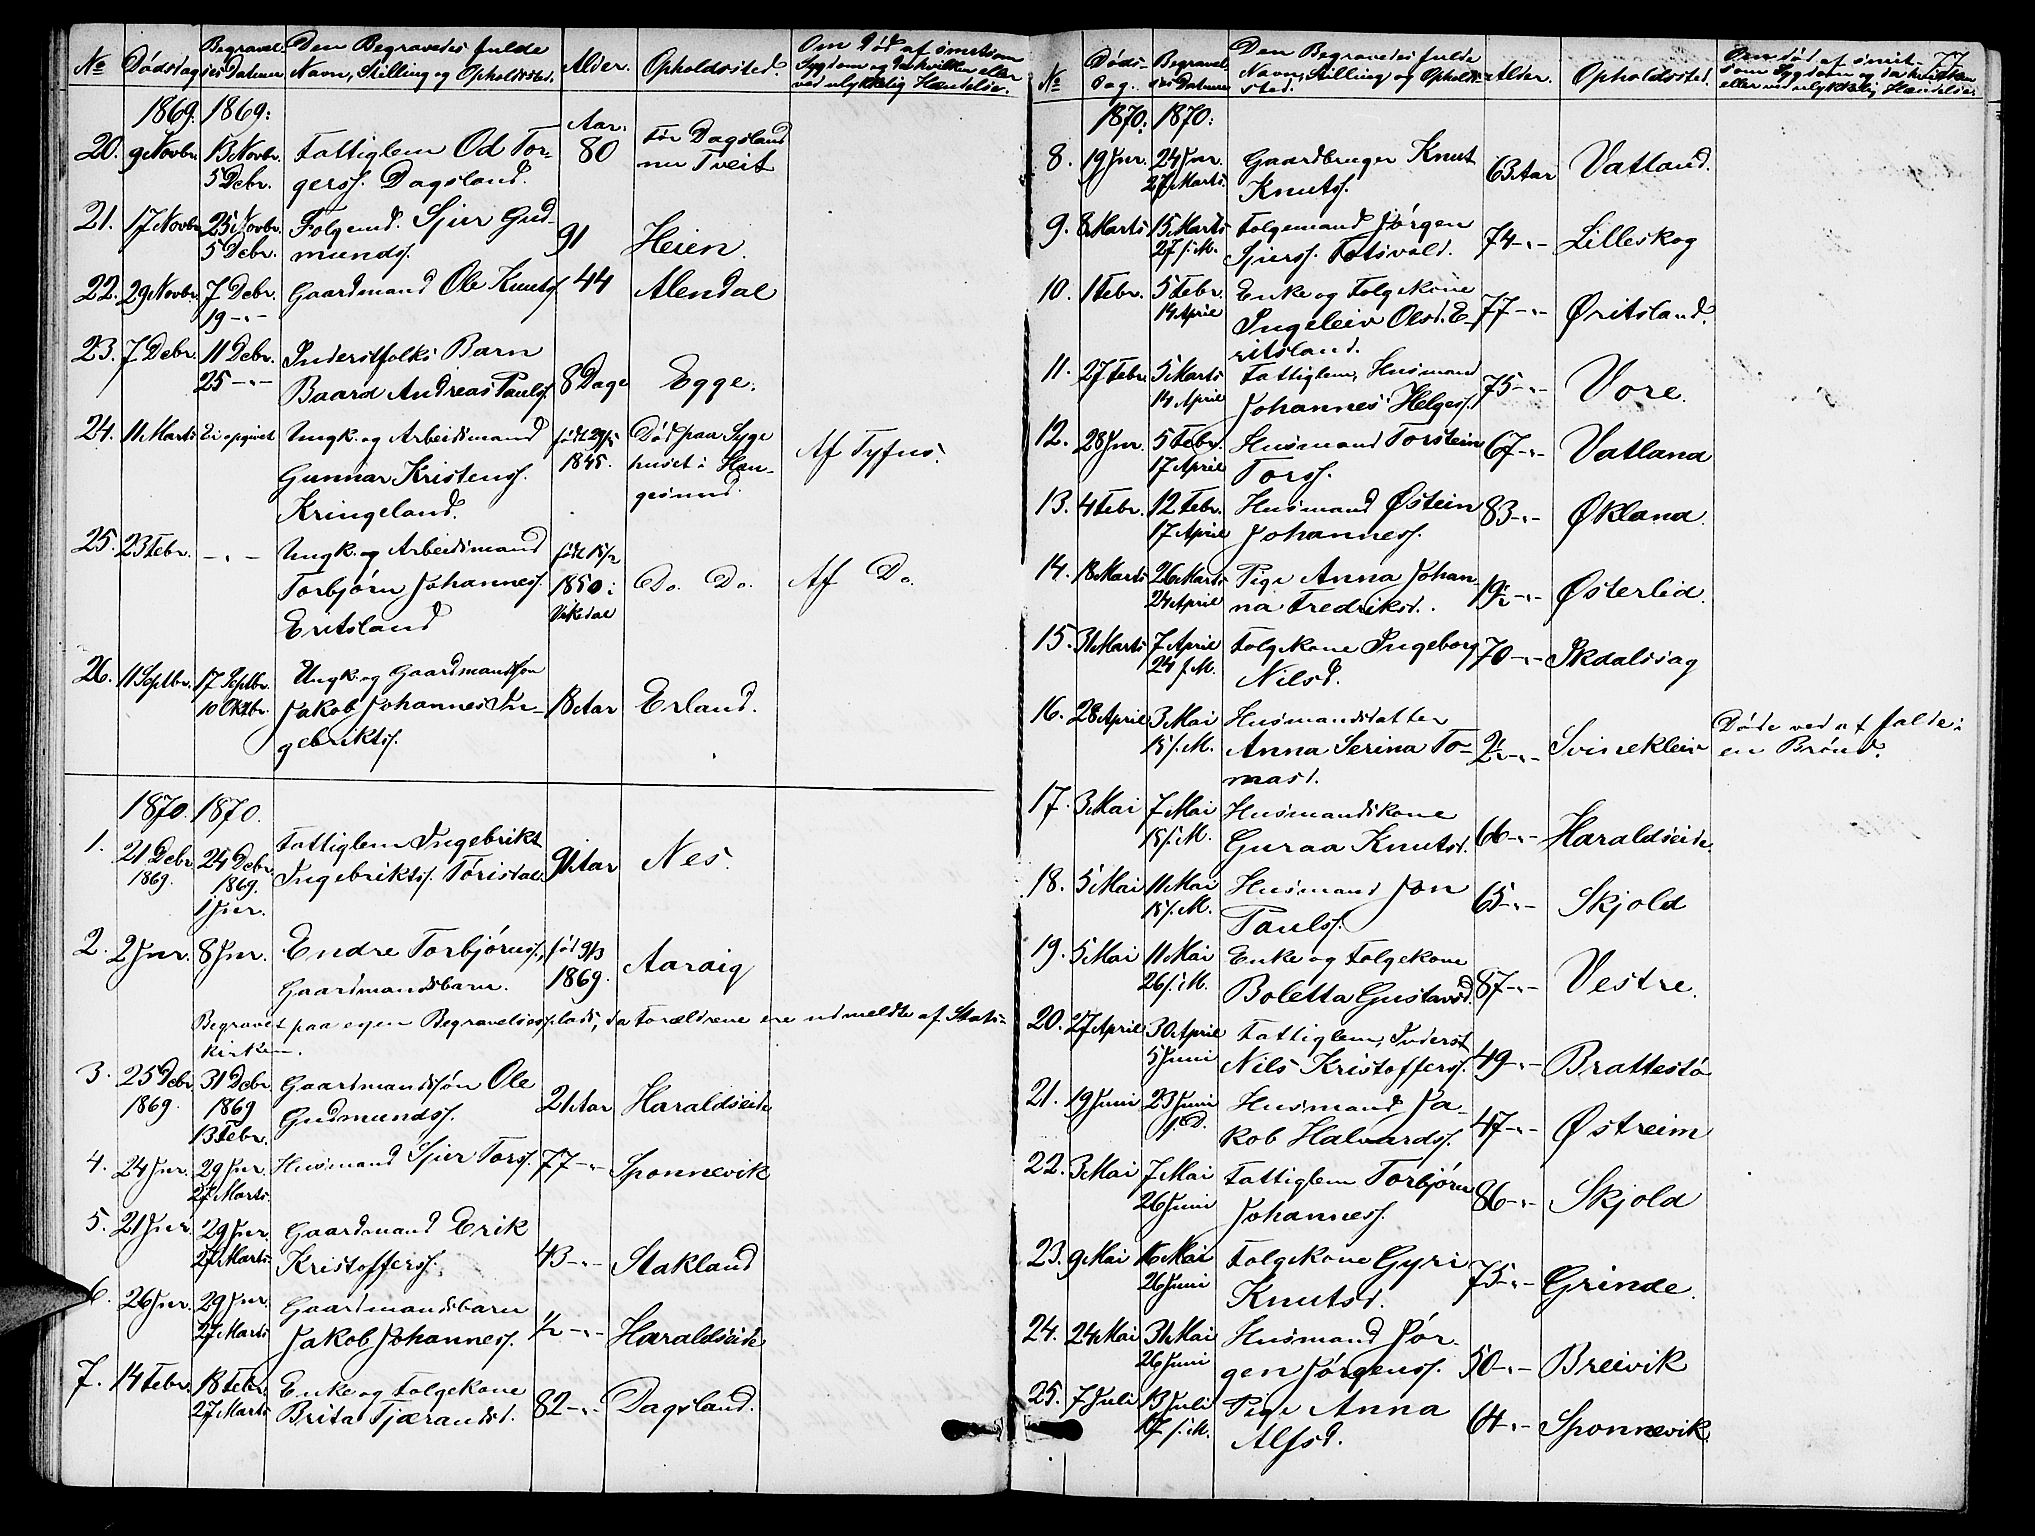 No Dødsdag Begravelses Datum Den Begravedes fulde Navn, Stilling og Opholdssted. Alder. Opholdssted. Om Død af smitsom Sygdom og da hvilken eller ved ulykkelig Hændelse.
1869. 1869: Aar.
20. 9 Novbr. 13 Novbr. Fattiglem Od Tor- 80 før Dagsland
5 Debr. gerss. Dagsland. nu Tveit
21. 17 Novbr. 25 Novbr. Folgemd. Sjur Gud- 91 Heien.
5 Debr. munds.
22. 29 Novbr. 7 Debr. Gaardmand Ole Knuts. 44 Alendal
19 -"-
23. 7 Debr. 11 Debr. Inderstfolks Barn
25 -"- Baard Andreas Pauls. 8 Dage Egge.
24. 11 Marts Ei opgivet Ungk. og Arbeidsmand født 29/5 Død paa Syge
Gunnar Kristenss. 1845. huset i Hau- Af Tyfus.
Kringeland. gesund.
25. 23 Febr. -"- Ungk. og Arbeidsmand født 15/2
Torbjørn Johannes. 1850: Do. Do. Af Do.
Eritsland Vikedal
26. 11 Septbr. 17 Septbr. Ungk. og Gaardmandssøn
10 Oktbr. Jakob Johannes In- 18 Aar Erland.
gebrikts.
1870. 1870.
1. 21 Debr. 24 Debr. Fattiglem Ingebrikt
1869. 1869. Ingebrikts. Töristal 91 Aar Nes.
1 Jnr.
2. 2 Jnr. 8 Jnr. Endre Torbjørns., fød 9/3
Gaardmandsbarn. 1869. Aaraig
Begravet paa egen Begravelsesplads, da Forældrene ere udmeldte af Stats-
kirken.
3. 25 Debr. 31 Debr. Gaardmandssøn Ole
1869. 1869 Gudmunds. 21 Aar Haraldseide
13 Febr.
4. 24 Jnr. 29 Jnr. Husmand Sjur Torss. 77 -"- Sponnevik
27 Marts.
5. 21 Jnr. 29 Jnr. Gaardmand Erik
27 Marts Kristofferss. 43 -"- Stakland
6. 26 Jnr. 29 Jnr. Gaardmandsbarn
27 Marts Jakob Johannes. 1/2 -"- Haraldseide
7. 14 Febr. 18 Febr. Enke og Folgekone
27 Marts Brita Tjærandsd. 82 -"- Dagsland.
77
No Døds- dag. Begravelses Datum Den Begravedes fulde Navn, Stilling og Opholdssted. Alder. Opholdssted. Om død af smitsom Sygdom og da hvilken eller ved ulykkelig Hændelse.
1870: 1870:
8. 19 Jnr. 24 Jnr. Gaardbruger Knut 63 Aar Vatland.
27 Marts. Knuts.
9. 8 Marts 15 Marts Folgemand Jørgen
27 s. M. Sjurss. Totsvold. 74 -"- Lilleskog
10. 1 Febr. 5 Febr. Enke og Folgekone
14 April Ingeleiv Olsd. E- 77 -"- Øritsland.
ritsland.
11. 27 Febr. 5 Marts Fattiglem, Husmand
14 April Johannes Helgess. 75 -"- Vore.
12. 28 Jnr. 5 Febr. Husmand Torstein 67 -"- Vatland
17 April Torss.
13. 4 Febr. 12 Febr. Husmand Østein 83 -"- Økland
17 April Johannes.
14. 18 Marts 26 Marts Pige Anna Johan-
24 April na Fredriksd. 19 1/2 -"- Østerlid.
15. 31 Marts 7 April Folgekone Ingeborg 70 -"- Skdalssag
24 s. M. Nilsd.
16. 28 April 3 Mai Husmandsdatter Døde ved at falde i
15 s. M. Anna Serina To- 2 1/2 -"- Svinekleiv en Brønd.
masd.
17. 3 Mai 7 Mai Husmandskone
15 s. M. Guraa Knutsd. 66 -"- Haraldseide.
18. 5 Mai 11 Mai Husmand Jon 65 -"- Skjold
15 s. M. Paulss.
19. 5 Mai 11 Mai Enke og Folgekone
26 s. M. Boletta Gustavsd. 87 -"- Vestre.
20. 27 April 30 April Fattiglem, Inderst
5 Juni Nils Kristofferss. 49 -"- Brattestø
21. 19 Juni 23 Juni Husmand Ja-
s. D. kob Halvardss. 47 -"- Østreim
22. 3 Mai 7 Mai Fattiglem Torbjørn 86 -"- Skjold
26 Juni Johannes.
23. 9 Mai 16 Mai Folgekone Gyri 75 -"- Grinde.
26 Juni Knutsd.
24. 24 Mai 31 Mai Husmand Jør-
26 Juni gen Jørgenss. 50 -"- Breivik
25. 7 Juli 13 Juli Pige Anna 64 -"- Sponnevik.
17 s. M. Alfsd.